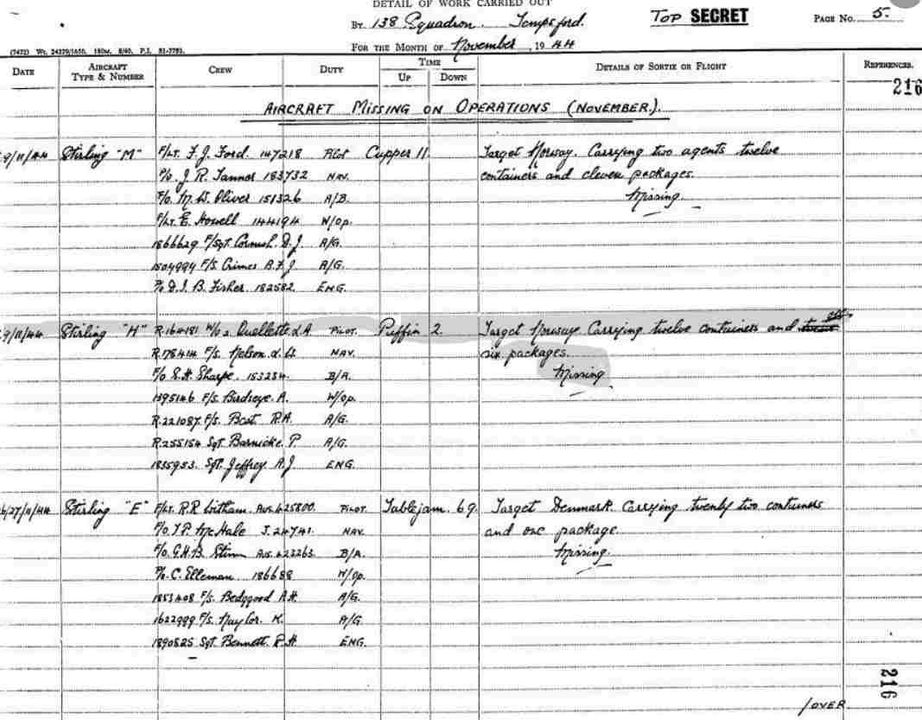 DETAIL OF WORK CARRIED OUT
By 138 Squadron. Tempsford. TOP SECRET PAGE No. 5.
FOR THE MONTH OF November 1944
DATE AIRCRAFT TYPE & NUMBER CREW DUTY TIME UP DOWN DETAILS OF SORTIE OR FLIGHT REFERENCES.
216
AIRCRAFT MISSING ON OPERATIONS (NOVEMBER.).
9/11/44 Stirling "M" F/Lt. F. J. Ford. 147218 Pilot Cupper 11. Target Norway. Carrying two agents twelve
P/O. J R. Tanner 183732 NAV. containers and eleven packages.
F/O. M. W. Oliver 151326 A/B. Missing.
F/Lt. E. Howell 144194 W/Op.
1866629 F/Sgt Cornish D. J A/G.
1504994 F/S. Grimes A. F. J A/G.
P/O D. I. B. Fisher 182582 ENG.
9/11/44 Stirling "H" R.164181 W/O2 Ouellette L A. PILOT. Puffin 2 Target Norway. Carrying twelve containers and
six packages.
R.178414 F/S. Nelson. L. G. NAV.
F/O S. H. Sharpe. 153254. B/A. Missing.
1395146 F/S. Birdseye. A. W/Op.
R.221087. F/S. Bost R.A. A/G.
R.255154 Sgt. Barnicke. P. A/G.
1835953. Sgt. Jeffrey A. J ENG.
26/27/11/44 Stirling "E" F/Lt. R.R Witham. Aus. 425800. PILOT. Tablejam. 69. Target Denmark. Carrying twenty two containers
F/O. T. P. McHale J. 24741. NAV. and one package.
F/O. G.H.B. Aus. 423263. B/A. Missing.
P/O. C. Elleman. 186688 W/Op.
1853408 F/S. Bedggood A.H A/G.
1622999 F/S. Naylor. K. A/G.
1890825 Sgt. Bennett. R. H ENG.
216
/OVER